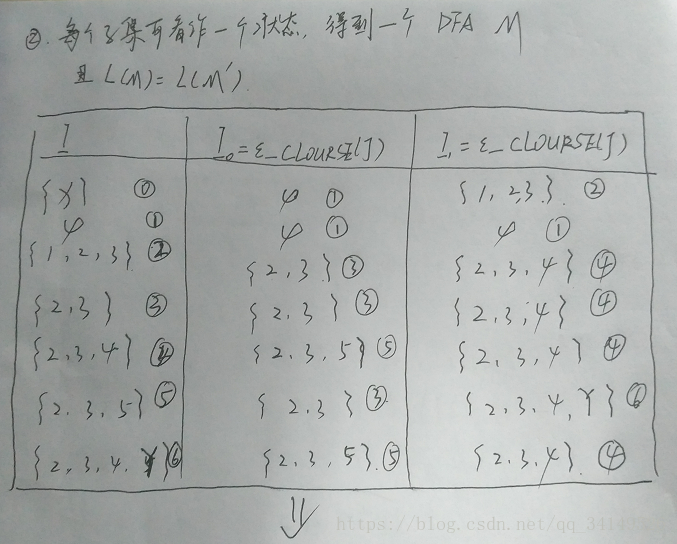 ②. 每个子集可看作一个状态，得到一个 DFA M
且 L(M) = L(M').
I I₀ = ε_CLOURSE(J) I₁ = ε_CLOURSE(J)
{X} ⓪ φ ① {1, 2, 3}. ②
φ ① φ ① φ ①
{1, 2, 3} ② {2, 3} ③ {2, 3, 4} ④
{2, 3} ③ {2, 3} ③ {2, 3, 4} ④
{2, 3, 4} {2, 3, 5} ⑤ {2, 3, 4} ④
{2, 3, 5} ⑤ {2, 3} ③ {2, 3, 4, Y} ⑥
{2, 3, 4, Y} ⑥ {2, 3, 5}. ⑤ {2, 3, 4}. ④
https://blog.csdn.net/qq_341